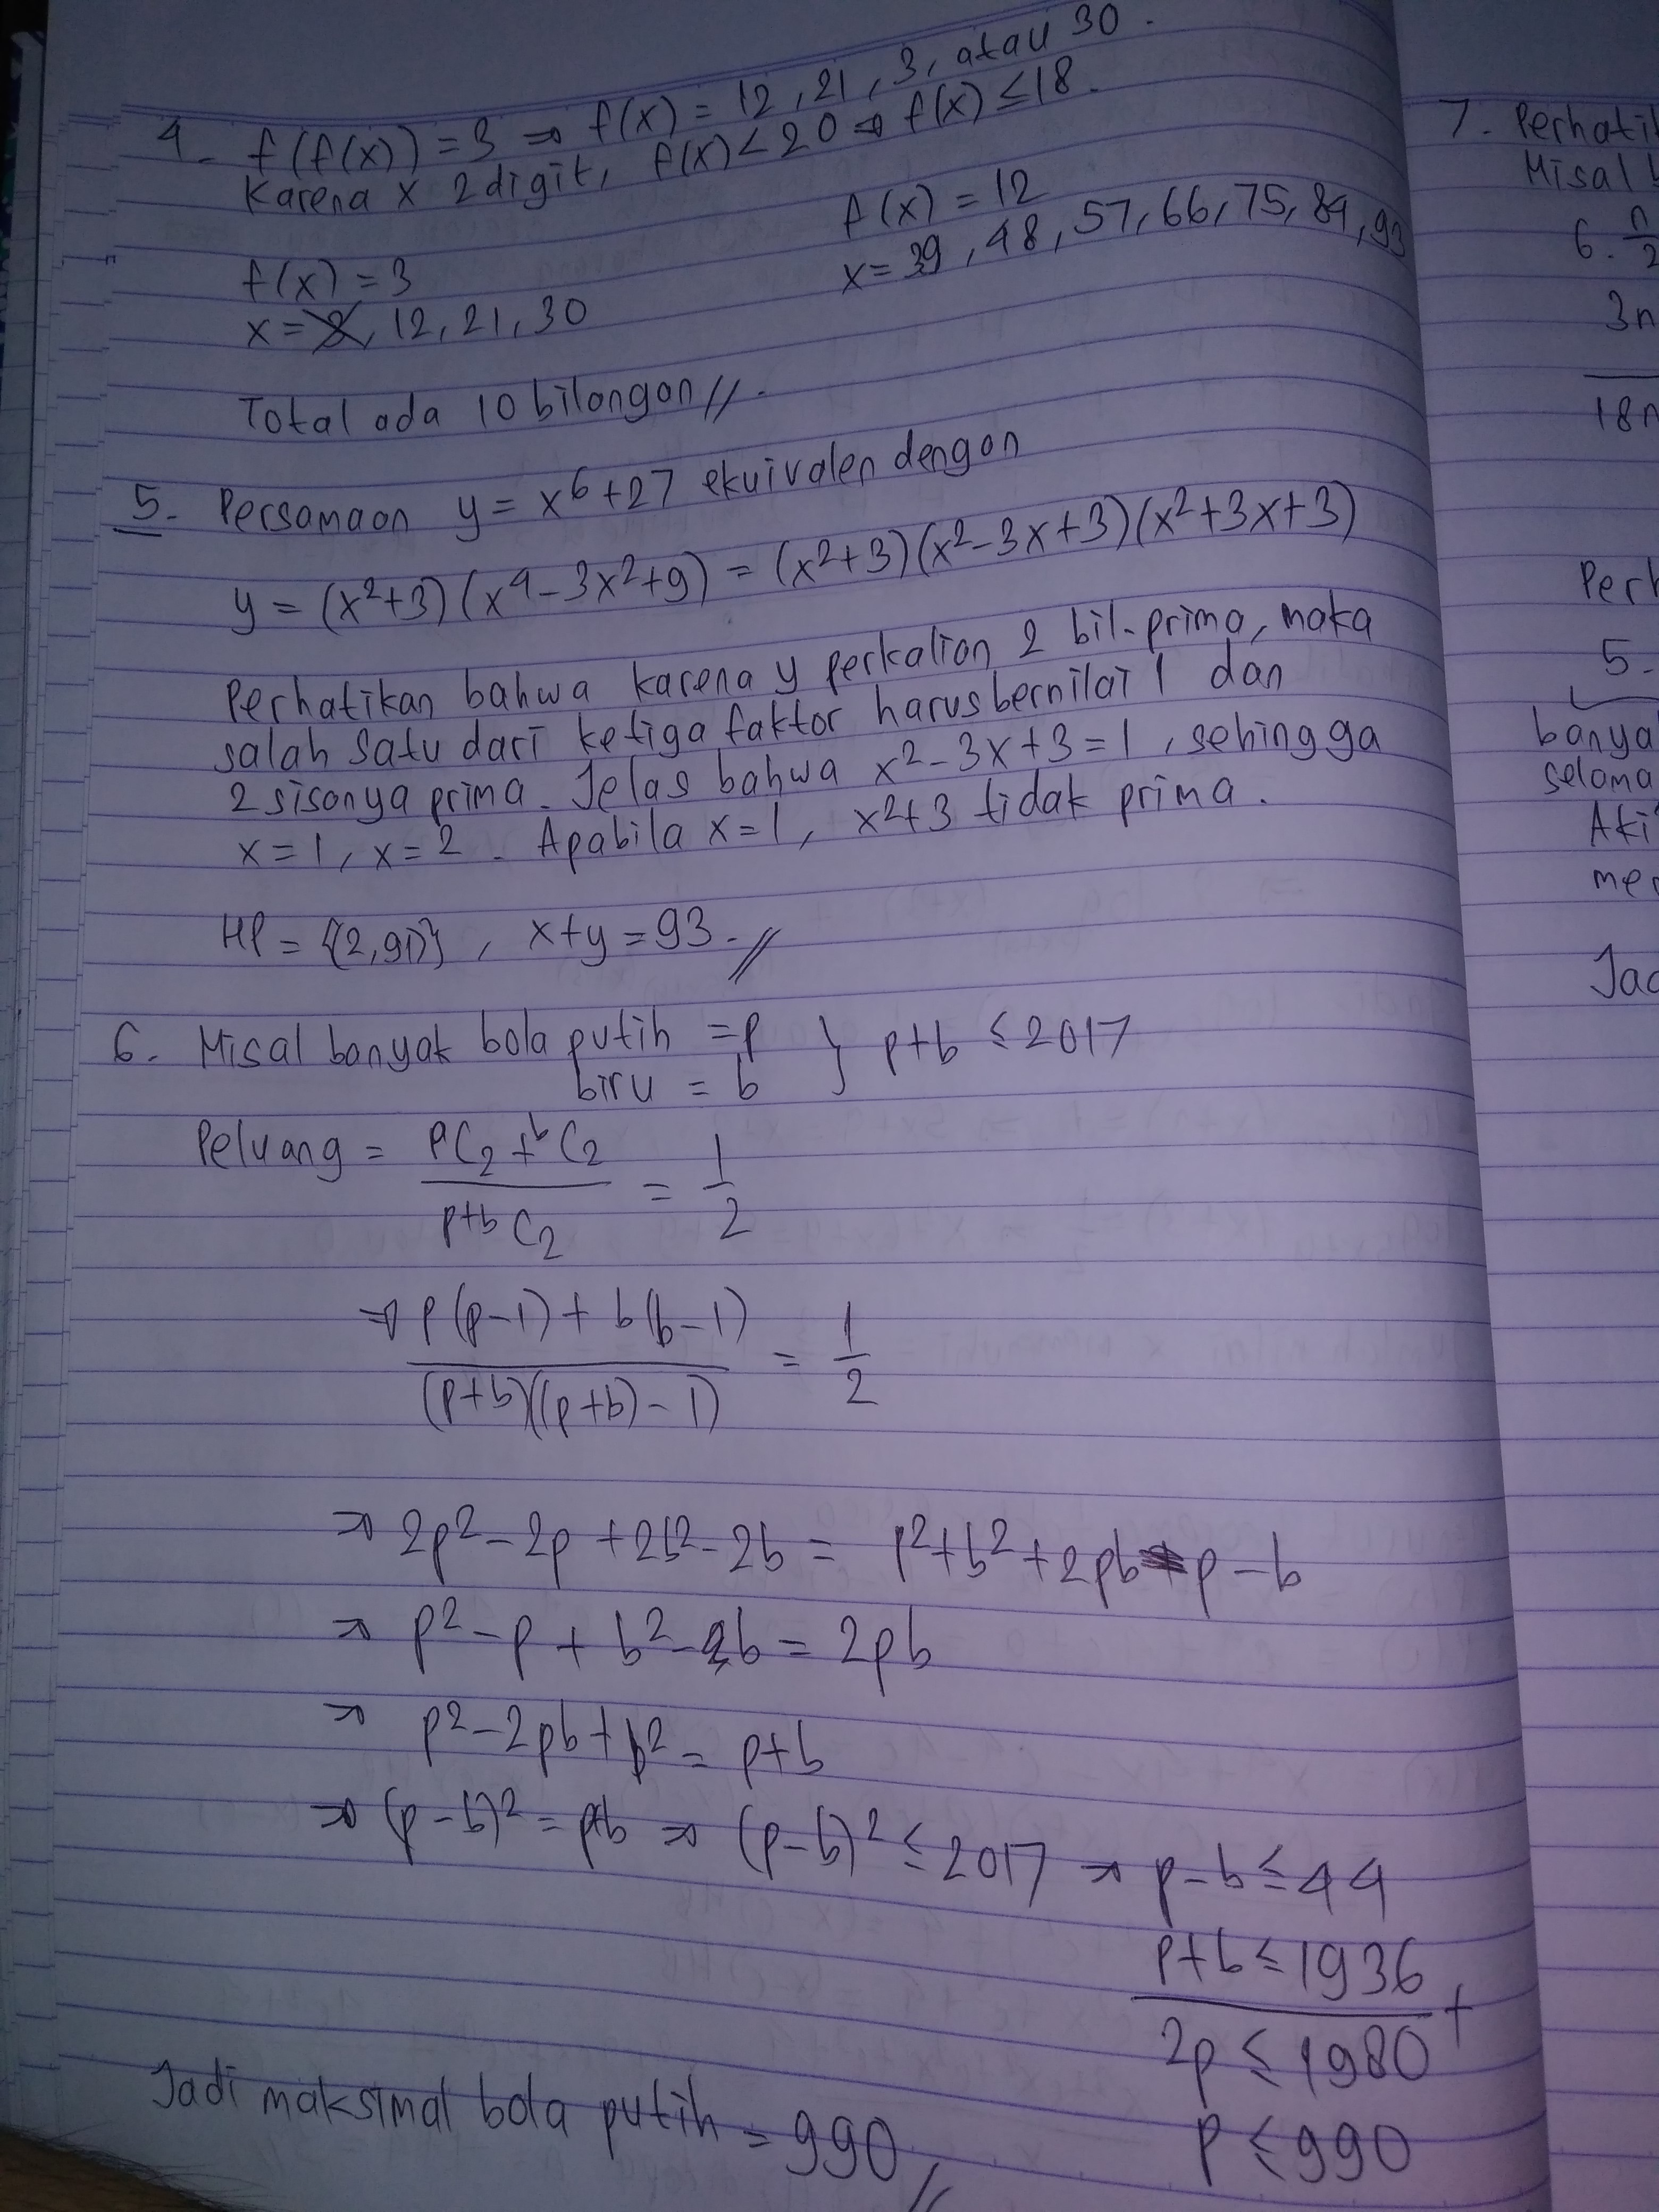 4. f(f(x)) = 3 ⇒ f(x) = 12, 21, 3, atau 30.
Karena x 2 digit, f(x) < 20 ⇒ f(x) ≤ 18.
f(x) = 3
x = 12, 21, 30
f(x) = 12
x = 39, 48, 57, 66, 75, 84, 93
Total ada 10 bilangan //.
5. Persamaan y = x⁶ + 27 ekuivalen dengan
y = (x²+3)(x⁴-3x²+9) = (x²+3)(x²-3x+3)(x²+3x+3)
Perhatikan bahwa karena y perkalian 2 bil. prima, maka
salah satu dari ketiga faktor harus bernilai 1 dan
2 sisanya prima. Jelas bahwa x²-3x+3=1, sehingga
x=1, x=2. Apabila x=1, x²+3 tidak prima.
HP = {(2,91)}, x+y = 93. //
6. Misal banyak bola putih = p } p+b ≤ 2017
biru = b
Peluang = (ᵖC₂ + ᵇC₂) / ᵖ⁺ᵇC₂ = 1/2
⇒ (p(p-1) + b(b-1)) / ((p+b)((p+b)-1)) = 1/2
⇒ 2p² - 2p + 2b² - 2b = p² + b² + 2pb - p - b
⇒ p² - p + b² - b = 2pb
⇒ p² - 2pb + b² = p+b
⇒ (p-b)² = p+b ⇒ (p-b)² ≤ 2017 → p-b ≤ 44
p+b ≤ 1936
+
2p ≤ 1980
p ≤ 990
Jadi maksimal bola putih = 990 //
7. Perhati
Misal
6. n/2
3n
18n
Per
5-
banya
selama
Aki
me
Jad